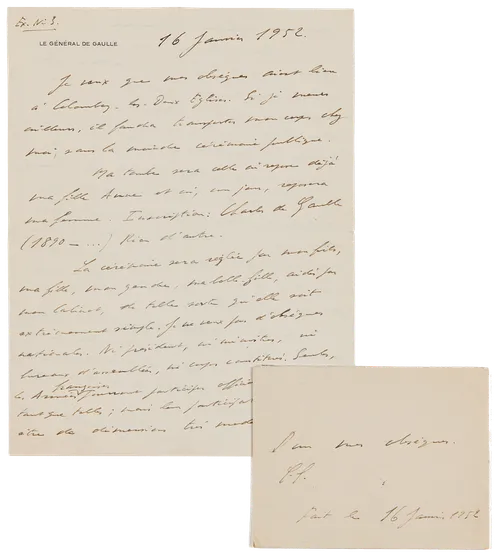 Ex. N° 3.
LE GÉNÉRAL DE GAULLE
16 Janvier 1952.
Je veux que mes obsèques aient lieu
à Colombey-les-Deux Eglises. Si je meurs
ailleurs, il faudra transporter mon corps chez
moi, sans la moindre cérémonie publique.
Ma tombe sera celle où repose déjà
ma fille Anne et où, un jour, reposera
ma femme. Inscription: Charles de Gaulle
(1890 - ...) Rien d'autre.
La cérémonie sera réglée par mon fils,
ma fille, mon gendre, ma belle fille, aidés par
mon cabinet, de telle sorte qu'elle soit
extrêmement simple. Je ne veux pas d'obsèques
nationales. Ni président, ni ministres, ni
bureaux d'assemblées, ni corps constitués. Seules,
les Armées françaises pourront participer
tant que telles; mais leur
être de dimensions très
Pour mes obsèques.
Fait le 16 Janvier 1952